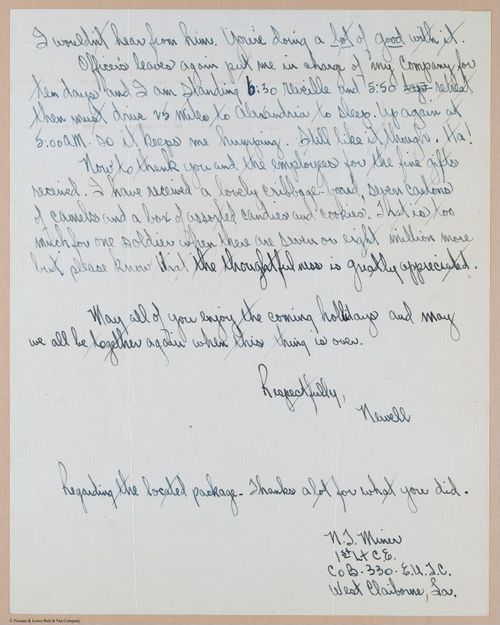 I wouldn't hear from him. You're doing a lot of good with it.
Officers leaves again put me in charge of my Company for
ten days and I am standing 6:30 reveille and 5:50 retreat
then must drive 25 miles to Alexandria to sleep. Up again at
5:00 AM. So it keeps me humping. Still like it though. Ha!
Now to thank you and the employees for the fine gifts
received. I have received a lovely cribbage-board, seven cartons
of camels and a box of assorted candies and cookies. That is too
much for one soldier when there are seven or eight million more
but please know that the thoughtfulness is greatly appreciated.
May all of you enjoy the coming holidays and may
we all be together again when this thing is over.
Respectfully,
Newell
Regarding the located package - Thanks a lot for what you did.
N.T. Miner
1st Lt C.E.
Co B - 330 - E.U.T.C.
West Claiborne, La.
© Pioneer & Lewis Bolt & Nut Company